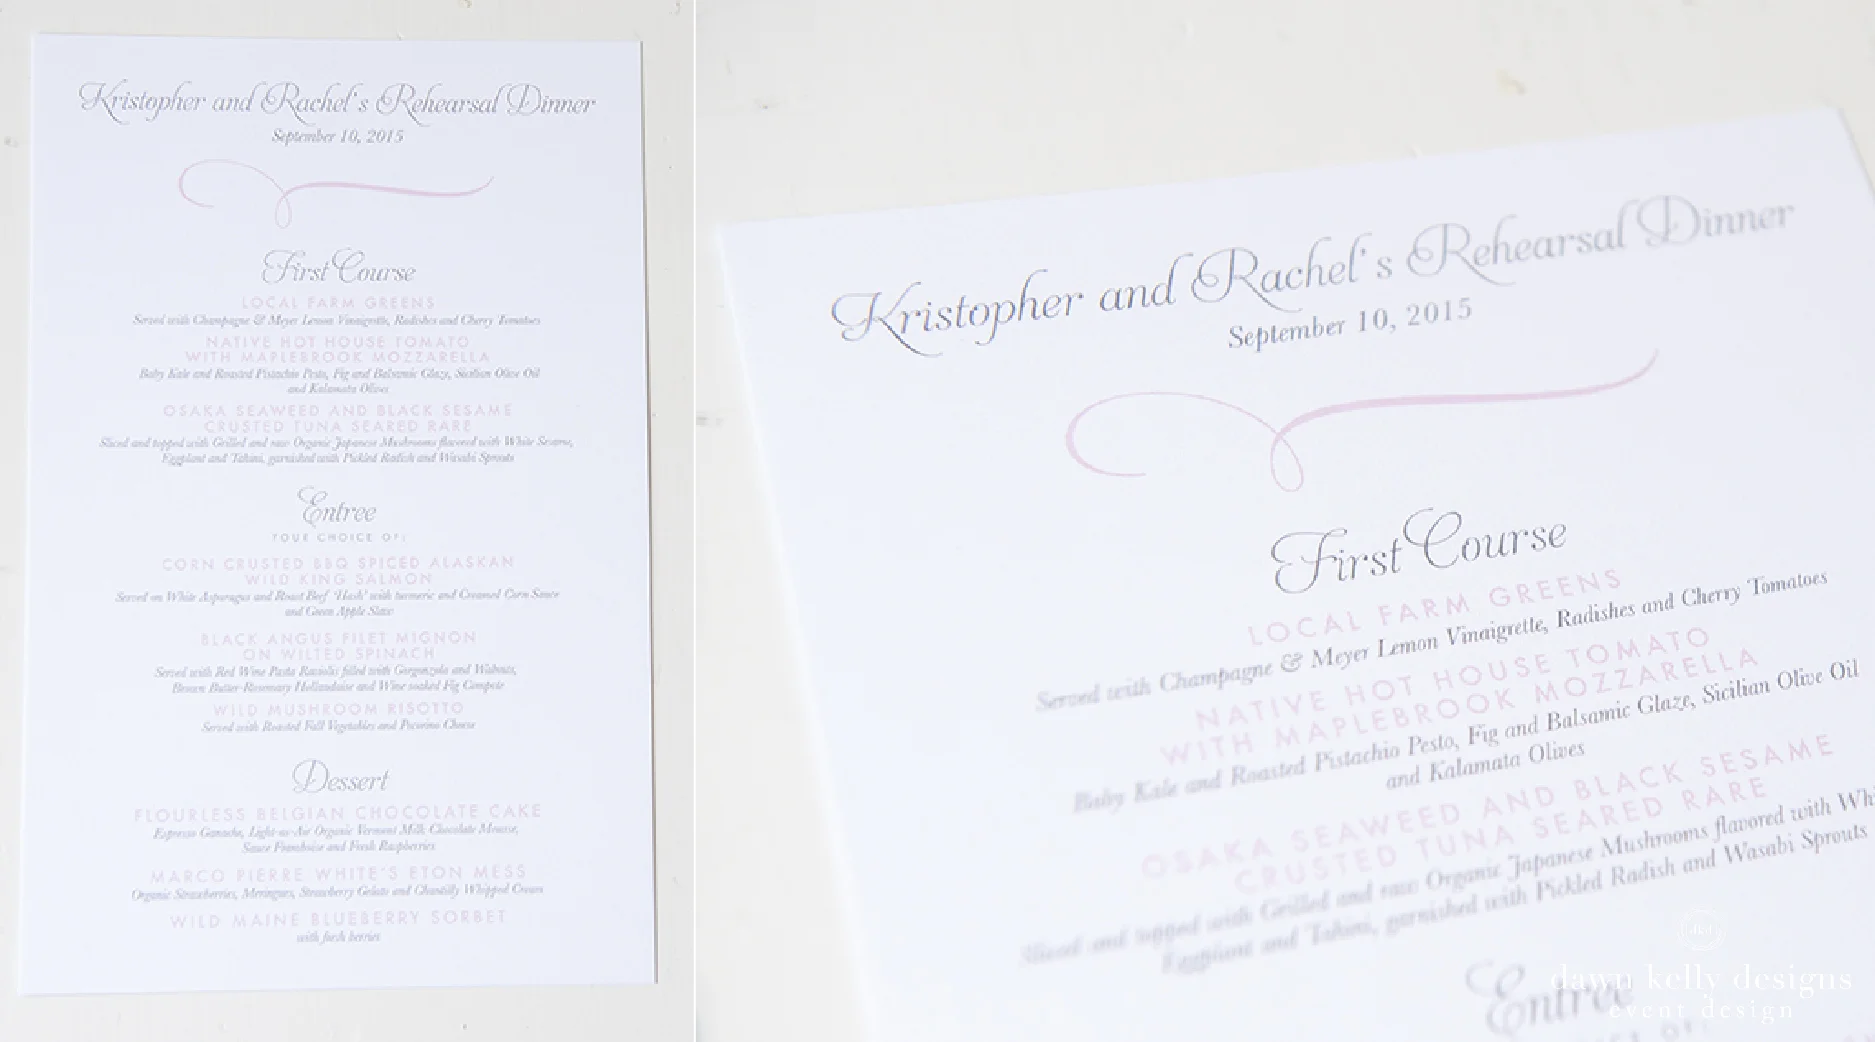 Kristopher and Rachel's Rehearsal Dinner
September 10, 2015
First Course
LOCAL FARM GREENS
Served with Champagne & Meyer Lemon Vinaigrette, Radishes and Cherry Tomatoes
NATIVE HOT HOUSE TOMATO
WITH MAPLEBROOK MOZZARELLA
Baby Kale and Roasted Pistachio Pesto, Fig and Balsamic Glaze, Sicilian Olive Oil
and Kalamata Olives
OSAKA SEAWEED AND BLACK SESAME
CRUSTED TUNA SEARED RARE
Sliced and topped with Grilled and raw Organic Japanese Mushrooms flavored with White Sesame,
Eggplant and Tahini, garnished with Pickled Radish and Wasabi Sprouts
Entree
YOUR CHOICE OF:
CORN CRUSTED BBQ SPICED ALASKAN
WILD KING SALMON
Served on White Asparagus and Roast Beef 'Hash' with turmeric and Creamed Corn Sauce
and Green Apple Slaw
BLACK ANGUS FILET MIGNON
ON WILTED SPINACH
Served with Red Wine Pasta Raviolis filled with Gorgonzola and Walnuts,
Brown Butter-Rosemary Hollandaise and Wine soaked Fig Compote
WILD MUSHROOM RISOTTO
Served with Roasted Fall Vegetables and Pecorino Cheese
Dessert
FLOURLESS BELGIAN CHOCOLATE CAKE
Espresso Ganache, Light-as-Air Organic Vermont Milk Chocolate Mousse,
Sauce Framboise and Fresh Raspberries
MARCO PIERRE WHITE'S ETON MESS
Organic Strawberries, Meringues, Strawberry Gelato and Chantilly Whipped Cream
WILD MAINE BLUEBERRY SORBET
with fresh berries
Kristopher and Rachel's Rehearsal Dinner
September 10, 2015
First Course
LOCAL FARM GREENS
Served with Champagne & Meyer Lemon Vinaigrette, Radishes and Cherry Tomatoes
NATIVE HOT HOUSE TOMATO
WITH MAPLEBROOK MOZZARELLA
Baby Kale and Roasted Pistachio Pesto, Fig and Balsamic Glaze, Sicilian Olive Oil
and Kalamata Olives
OSAKA SEAWEED AND BLACK SESAME
CRUSTED TUNA SEARED RARE
Sliced and topped with Grilled and raw Organic Japanese Mushrooms flavored with Whi
Eggplant and Tahini, garnished with Pickled Radish and Wasabi Sprouts
Entree
dawn kelly designs
event design